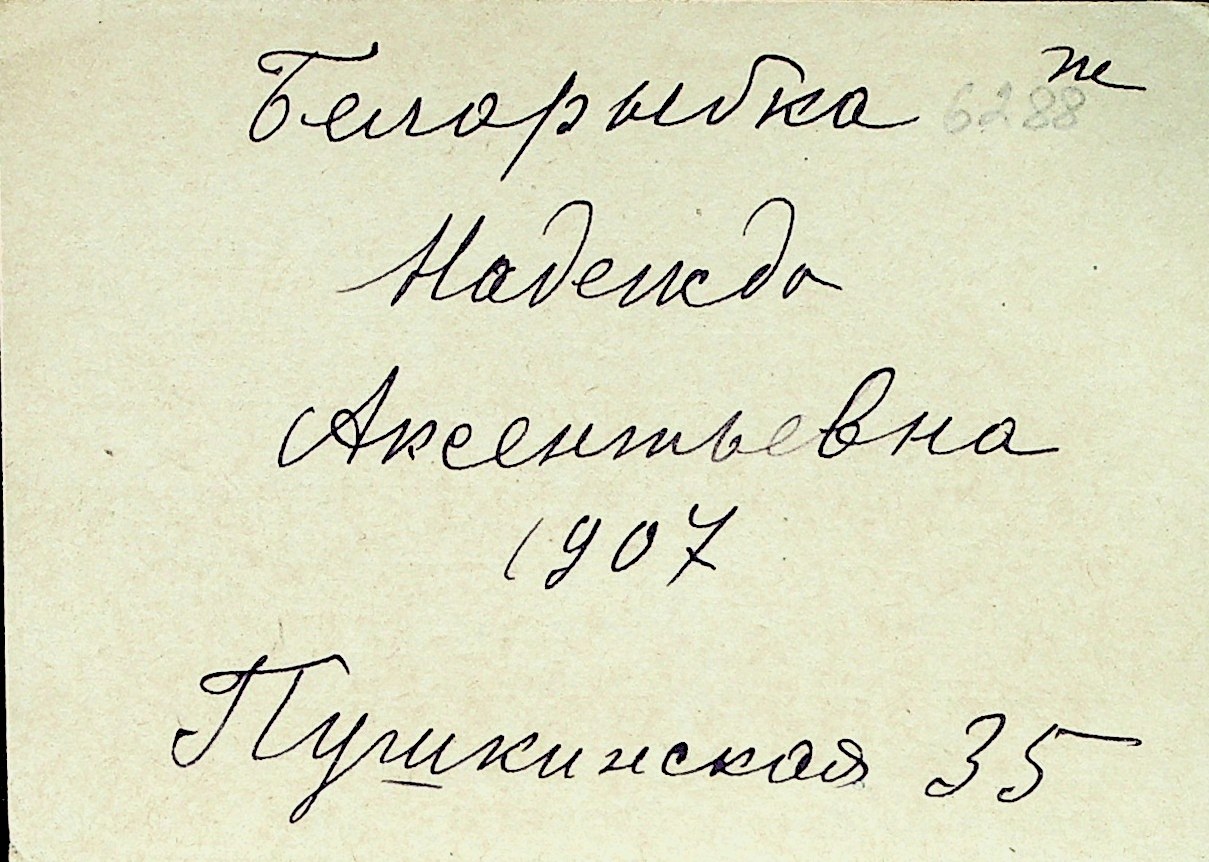 Белорыбка 6288
Надежда
Аксентьевна
1907
Пушкинская 35